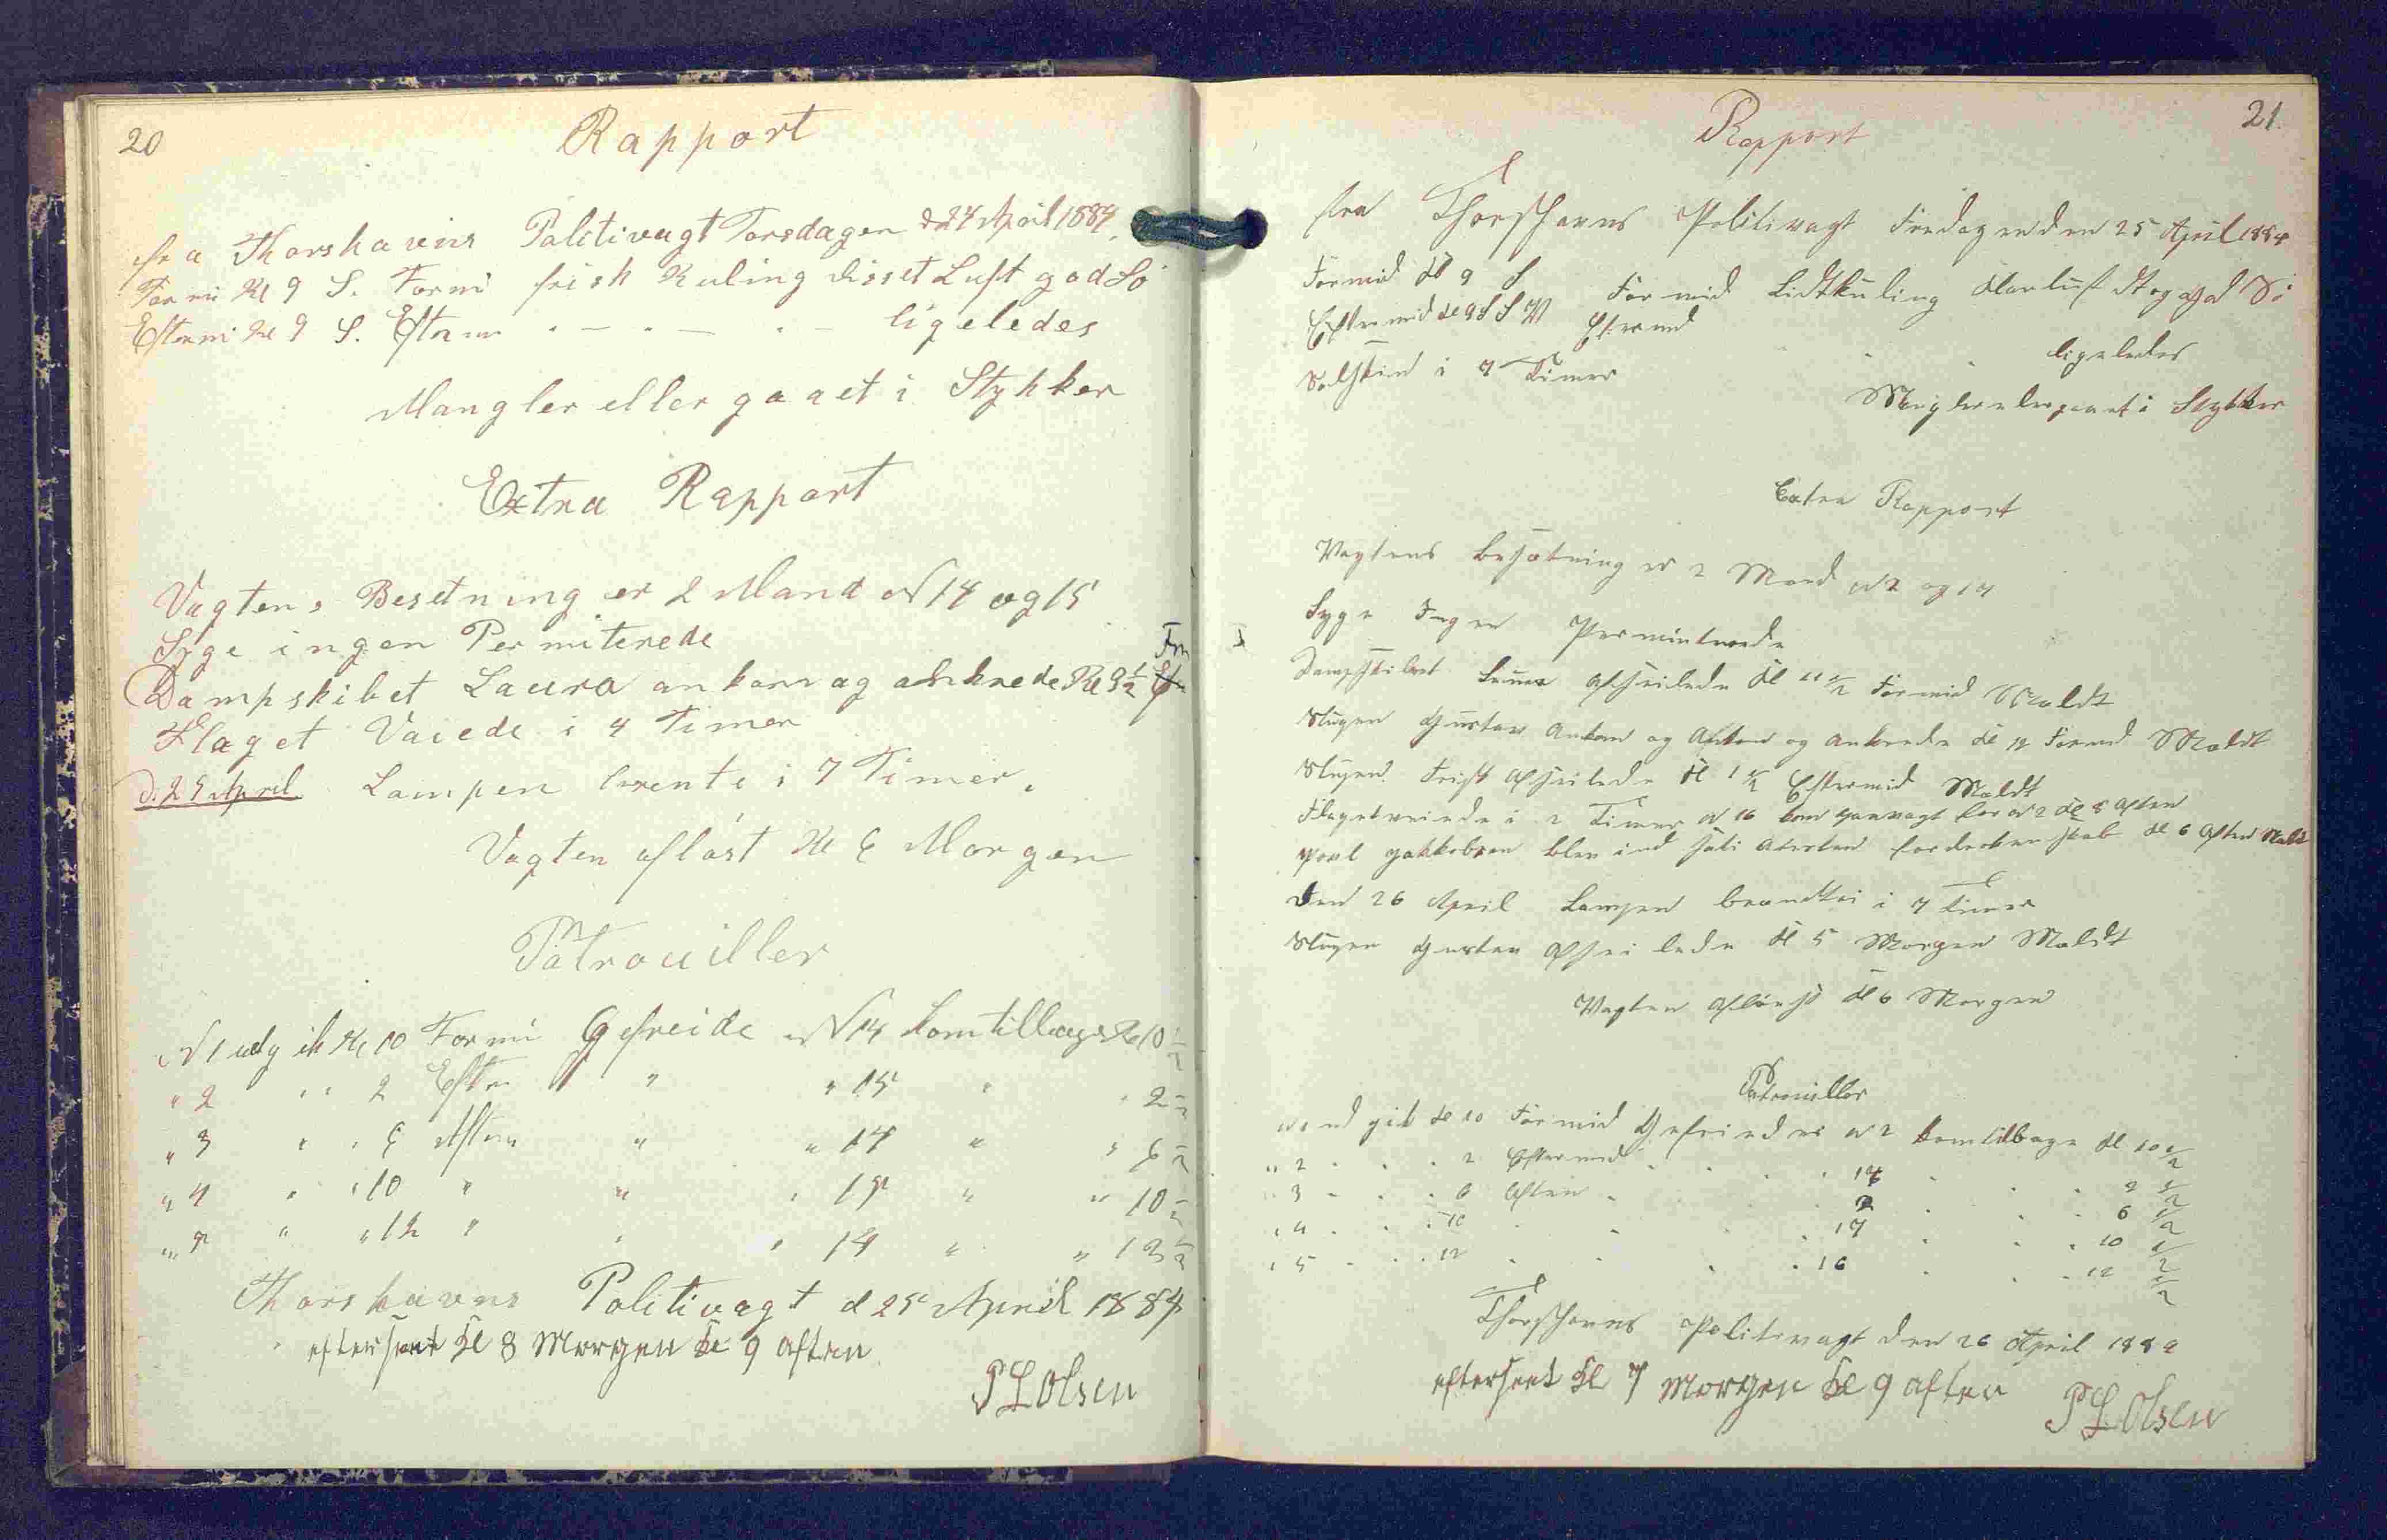 20
Rapport
fra Thorshavns Politivagt Torsdagen d 24 April 1884.
Formi Kl 9 S. Formi frisk Kuling disset Luft god Sö
Eftermi Kl 9 S. Efterm " — " — " — ligeledes
Mangler eller gaaet i Stykker
Extra Rapport
Vagtens Besetning er 2 Mand N 14 og 15
Syge ingen Permiterede
Fm
Dampskibet Laura ankom og ankrede Kl 9½
Flaget Vaiede i 4 Timer
D. 25 April Lampen brente i 7 Timer.
Vagten aflöst Kl 6 Morgen
Patrouiller
N 1 udgik Kl 10 Formi Gefreide N 14 kom tilbage Kl 10½
" 2 " " 2 Eftm " " 15 " " 2½
" 3 " " 6 Aften " " 14 " " 6½
" 4 " " 10 " " " 15 " " 10½
" 5 " " 12 " " " 14 " " 12½
Thorshavns Politivagt d 25 April 1884
efterseet Kl 8 Morgen Kl 9 Aften
P L Olsen
21.
Rapport
fra Thorshavns Politivagt Fredagen den 25 April 1884
Formid Kl 9 S Formid Lidt Kuling Klar luft og god Sö
Eftermid Kl 9 S S W Eftermd " " ligeledes
Solskin i 7 Timer
Mangler eller gaaet i Stykker
Extra Rapport
Vagtens besætning er 2 Mand N 2 og 14
Syge Ingen Perminterede
Dampskibet Laura afseilede Kl 11½ Formid Mældt
Slupen Gustav Ankom og Ankrede Kl 12 Formd Mældt
Slupen Frisk afseilede Kl 1½ Eftermid Mældt
Flaget vaiede i 2 Timer N 16 kom paa vagt for N 2 Kl 8 Aften
Poul Jakkobsen blev ind sat i Aresten for drukkenskab Kl 6 Aften Mældt
Den 26 April Lampen brændte i 7 Timer
Slupen Gustav Afseilede Kl 5 Morgen Mældt
Vagten Aflöst Kl 6 Morgen
Patrouiller
N 1 ud gik Kl 10 Formid Gefreider N 2 kom tilbage Kl 10½
" 2 " " 2 Eftermid " " 14 " " 2½
" 3 " " 6 Aften " " 2 " " 6½
" 4 " " 10 " " " 14 " " 10½
" 5 " " 12 " " " 16 " " 12½
Thorshavns Politivagt den 26 April 1884
efterseet Kl 7 Morgen Kl 9 Aften
P L Olsen